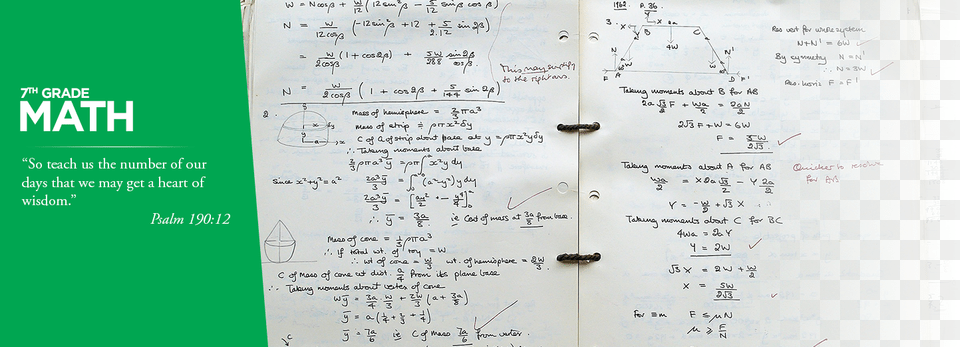 7TH GRADE
MATH
“So teach us the number of our
days that we may get a heart of
wisdom.”
Psalm 190:12
W = Ncosβ + W/12 (12 sin²β - 5/12 sin 2β
N = W/12cosβ (-12 sin²β + 12 + 5/2.12 sin 2β)
= W/2cosβ (1 + cos2β) + 5W/288 sin2β/cosβ
This may simplify
to the right ans.
N = W/2cosβ (1 + cos2β + 5/144 sin 2β)
2.
Mass of hemisphere = 2/3 πρa³
Mass of strip ≑ ρπx²δy
C of G of strip about base at y = ρπx²yδy
∴ Taking moments about base
2/3 ρπa³ȳ = ρπ∫x²y dy
Since x²+y²=a² 2a³ȳ/3 = ∫(a²-y²)y dy
∴ ȳ = 3a/8 ie C of mass at 3a/8 from base.
Mass of cone = 1/3 ρπa³
∴ If total wt. of toy = W
∴ wt of cone = W/3 wt. of hemisphere = 2W/3
C of Mass of cone at dist. a/4 from its plane base
∴ Taking moments about vertex of cone
Wȳ = 3a/4 · W/3 + 2W/3 (a + 3a/8)
ȳ = a(1/4 + 2/3 + 1/4)
ȳ = 7a/6 ie C of mass 7a/6 from vertex.
1962. P. 36
3.
X
Y
B
C
4W
N
N'
W
A
D
F'
Res vert for whole system
N+N' = 6W
By symmetry N = N'
∴ N = 3W
Res. horiz F = F'
Taking moments about B for AB
2a√3/2 F + Wa/2 = 2aN/2
2√3F + W = 6W
F = 5W/2√3
Taking moments about A for AB
Quicker to
for AB
Wa/2 = X2a√3/2 - Y 2a/2
Y = -W/2 + √3 X
Taking moments about C for BC
4Wa = 2aY
Y = 2W
√3 X = 2W + W/2
X = 5W/2√3
For F ≤ μN
μ ≥ F/N